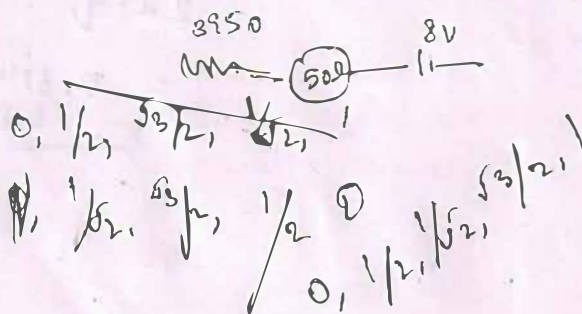 3950 8V
50Ω
0, 1/2, √3/2, 1/√2, 1
1/√2, √3/2, 1/2 0
0, 1/2, 1/√2, √3/2, 1